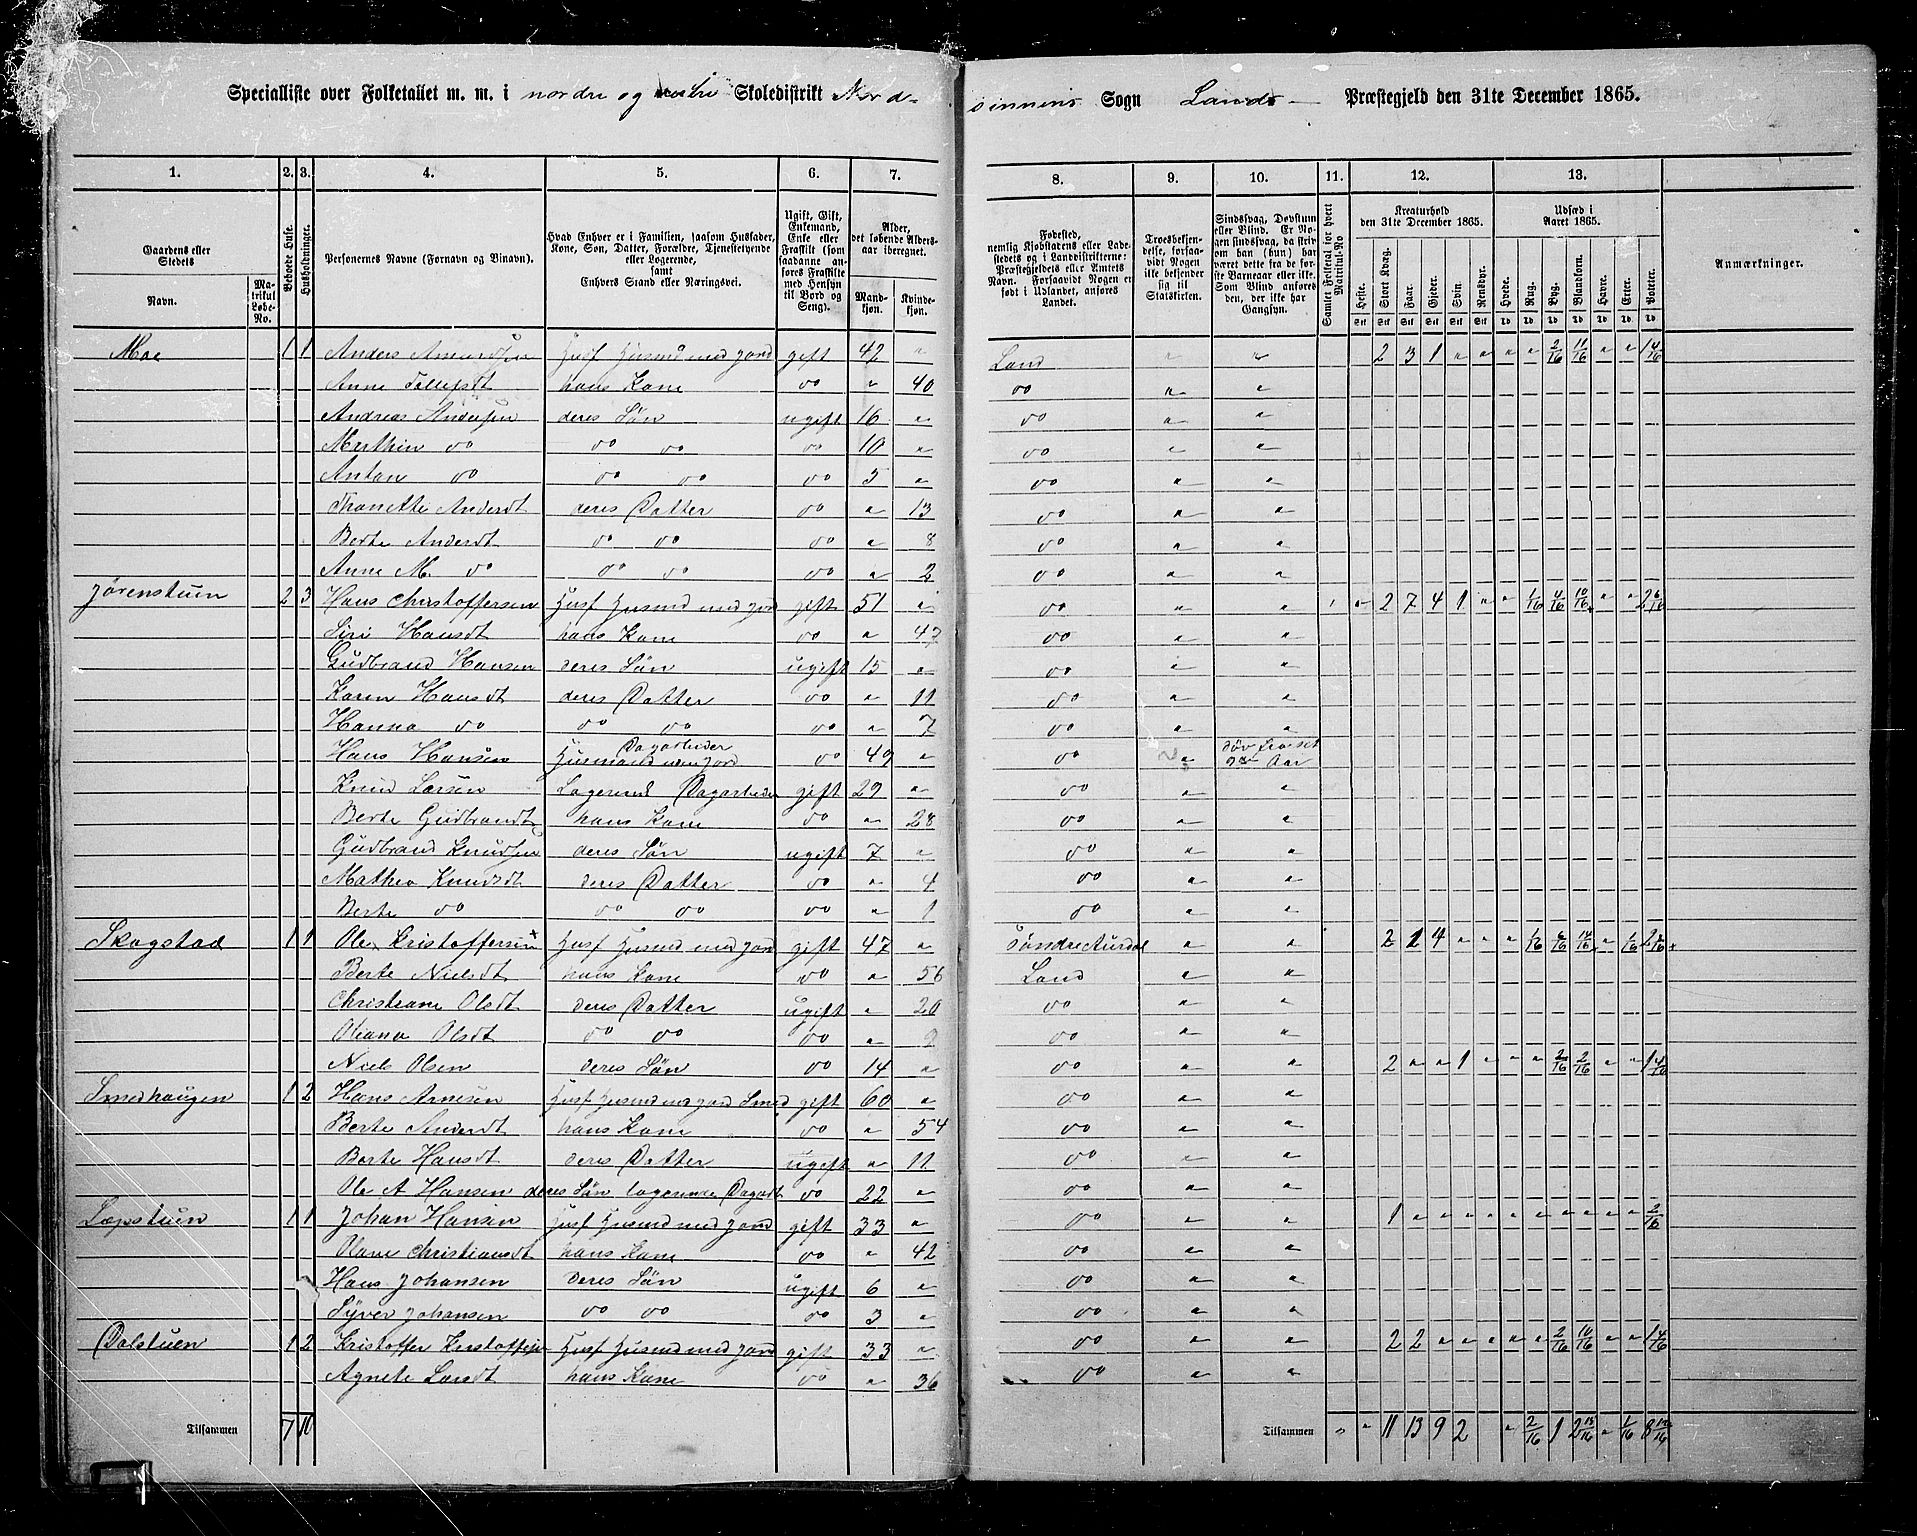 Specialliste over Folketallet m. m. i nordre og vestre Skoledistrikt Nord- sinnens Sogn Lands Præstegjeld den 31te December 1865.
1. 2. 3. 4. 5. 6. 7. 8. 9. 10. 11. 12. 13.
Gaardens eller Stedets
Navn.
Matrikul Løbe-No.
Beboede Huse.
Husholdninger.
Personernes Navne (Fornavn og Tilnavn).
Hvad Enhver er i Familien, saasom Husfader, Kone, Søn, Datter, Forældre, Tjenestetyende eller Logerende, samt Enhvers Stand eller Næringsvei.
Ugift, Gift, Enkemand, Enke eller Fraskilt (som saadanne anføres Fraskilte med Hensyn til Bord og Seng).
Alder, det løbende Alders-aar iberegnet.
Mandkjøn. Kvindekjøn.
Fødested, nemlig Kjøbstadens eller Ladestedets og i Landdistrikterne: Præstegjeldets eller Amtets Navn. Forsaavidt Nogen er født i Udlandet, anføres Landet.
Troesbekjendelse, forsaavidt Nogen ikke bekjender sig til Statskirken.
Sindssvag, Døvstum eller Blind. Er Nogen sindssvag, da skrives om han (hun) har været dette fra de første Barneaar eller ikke. Som Blind anføres den, der ikke har Gangsyn.
Samlet Folketal for hvert Matrikul-No
Kreaturhold den 31te December 1865.
Heste. Stort Kvæg. Faar. Gjeder. Svin. Rensdyr.
Udsæd i Aaret 1865.
Hvede. Rug. Byg. Blandkorn. Havre. Erter. Poteter.
Anmærkninger.
Moe 1 1 Anders Amundsen Husf Husmd med Jord gift 42 " Land " " 2 3 1 " " " " 2/16 11/16 " " 1 4/16
Anne Tollefsdt hans Kone do " 40 do " "
Andreas Andersen deres Søn ugift 16 " do " "
Marthin do do do do 10 " do " "
Anton do do do do 5 " do " "
Thonette Andersdt deres Datter do " 13 do " "
Berte Andersdt do do do " 8 do " "
Anne M. do do do do " 2 do " "
Jørenstuen 2 3 Hans Christoffersen Husf Husmd med Jord gift 51 " do " " 2 7 4 1 " " 1/16 4/16 10/16 " " 2 6/16
Siri Hansdt hans Kone do " 47 do " "
Gudbrand Hansen deres Søn ugift 15 " do " "
Karen Hansdt deres Datter do " 11 do " "
Hanna do do do do " 7 do " "
Hans Hansen Husmand uden Jord Dagarbeider do 49 " do " døv Aar
Knud Larsen Logerend Dagarbeider gift 29 " do " "
Berte Gudbrandt hans Kone do " 28 do " "
Gudbrand Knudsen deres Søn ugift 7 " do " "
Mathea Knudsdt deres Datter do " 4 do " "
Berte do do do do " 1 do " "
Skogstad 1 1 Ole Kristoffersen Husf Husmd med Jord gift 47 " Søndre Aurdal " " 2 1 4 " " " 1/16 6/16 14/16 " 1/16 2 /16
Berte Nielsdt hans Kone do " 56 Land " "
Christiane Olsdt deres Datter ugift " 20 do " "
Oliana Olsdt do do do " 9 do " "
Niels Olsen deres Søn do 14 " do " " 2 " " 1 " " " 2/16 2/16 " " 1 4/16
Smedhaugen 1 2 Hans Arnesen Husf Husmd med Jord Smed gift 60 " do " "
Berte Andersdt hans Kone do " 54 do " "
Berte Hansdt deres Datter ugift " 11 do " "
Ole A Hansen deres Søn logerende Dagarb do 22 " do " "
Lapstuen 1 1 Johan Hansen Husf Husmd med Jord gift 33 " do " " 1 " " " " " " " " " " 2/16
Olane Christiansdt hans Kone do " 42 do " "
Hans Johansen deres Søn ugift 6 " do " "
Syver Johansen do do do 3 " do " "
Dalstuen 1 2 Kristoffer Kristoffersen Husf Husmd med Jord gift 33 " do " " 2 2 " " " " " 2/16 10/16 " " 1 4/16
Agnete Larsdt hans Kone do " 36 do " "
Tilsammen 7 10 Tilsammen " " 11 13 9 2 " 2/16 1 2 15/16 " 1/16 8 /16